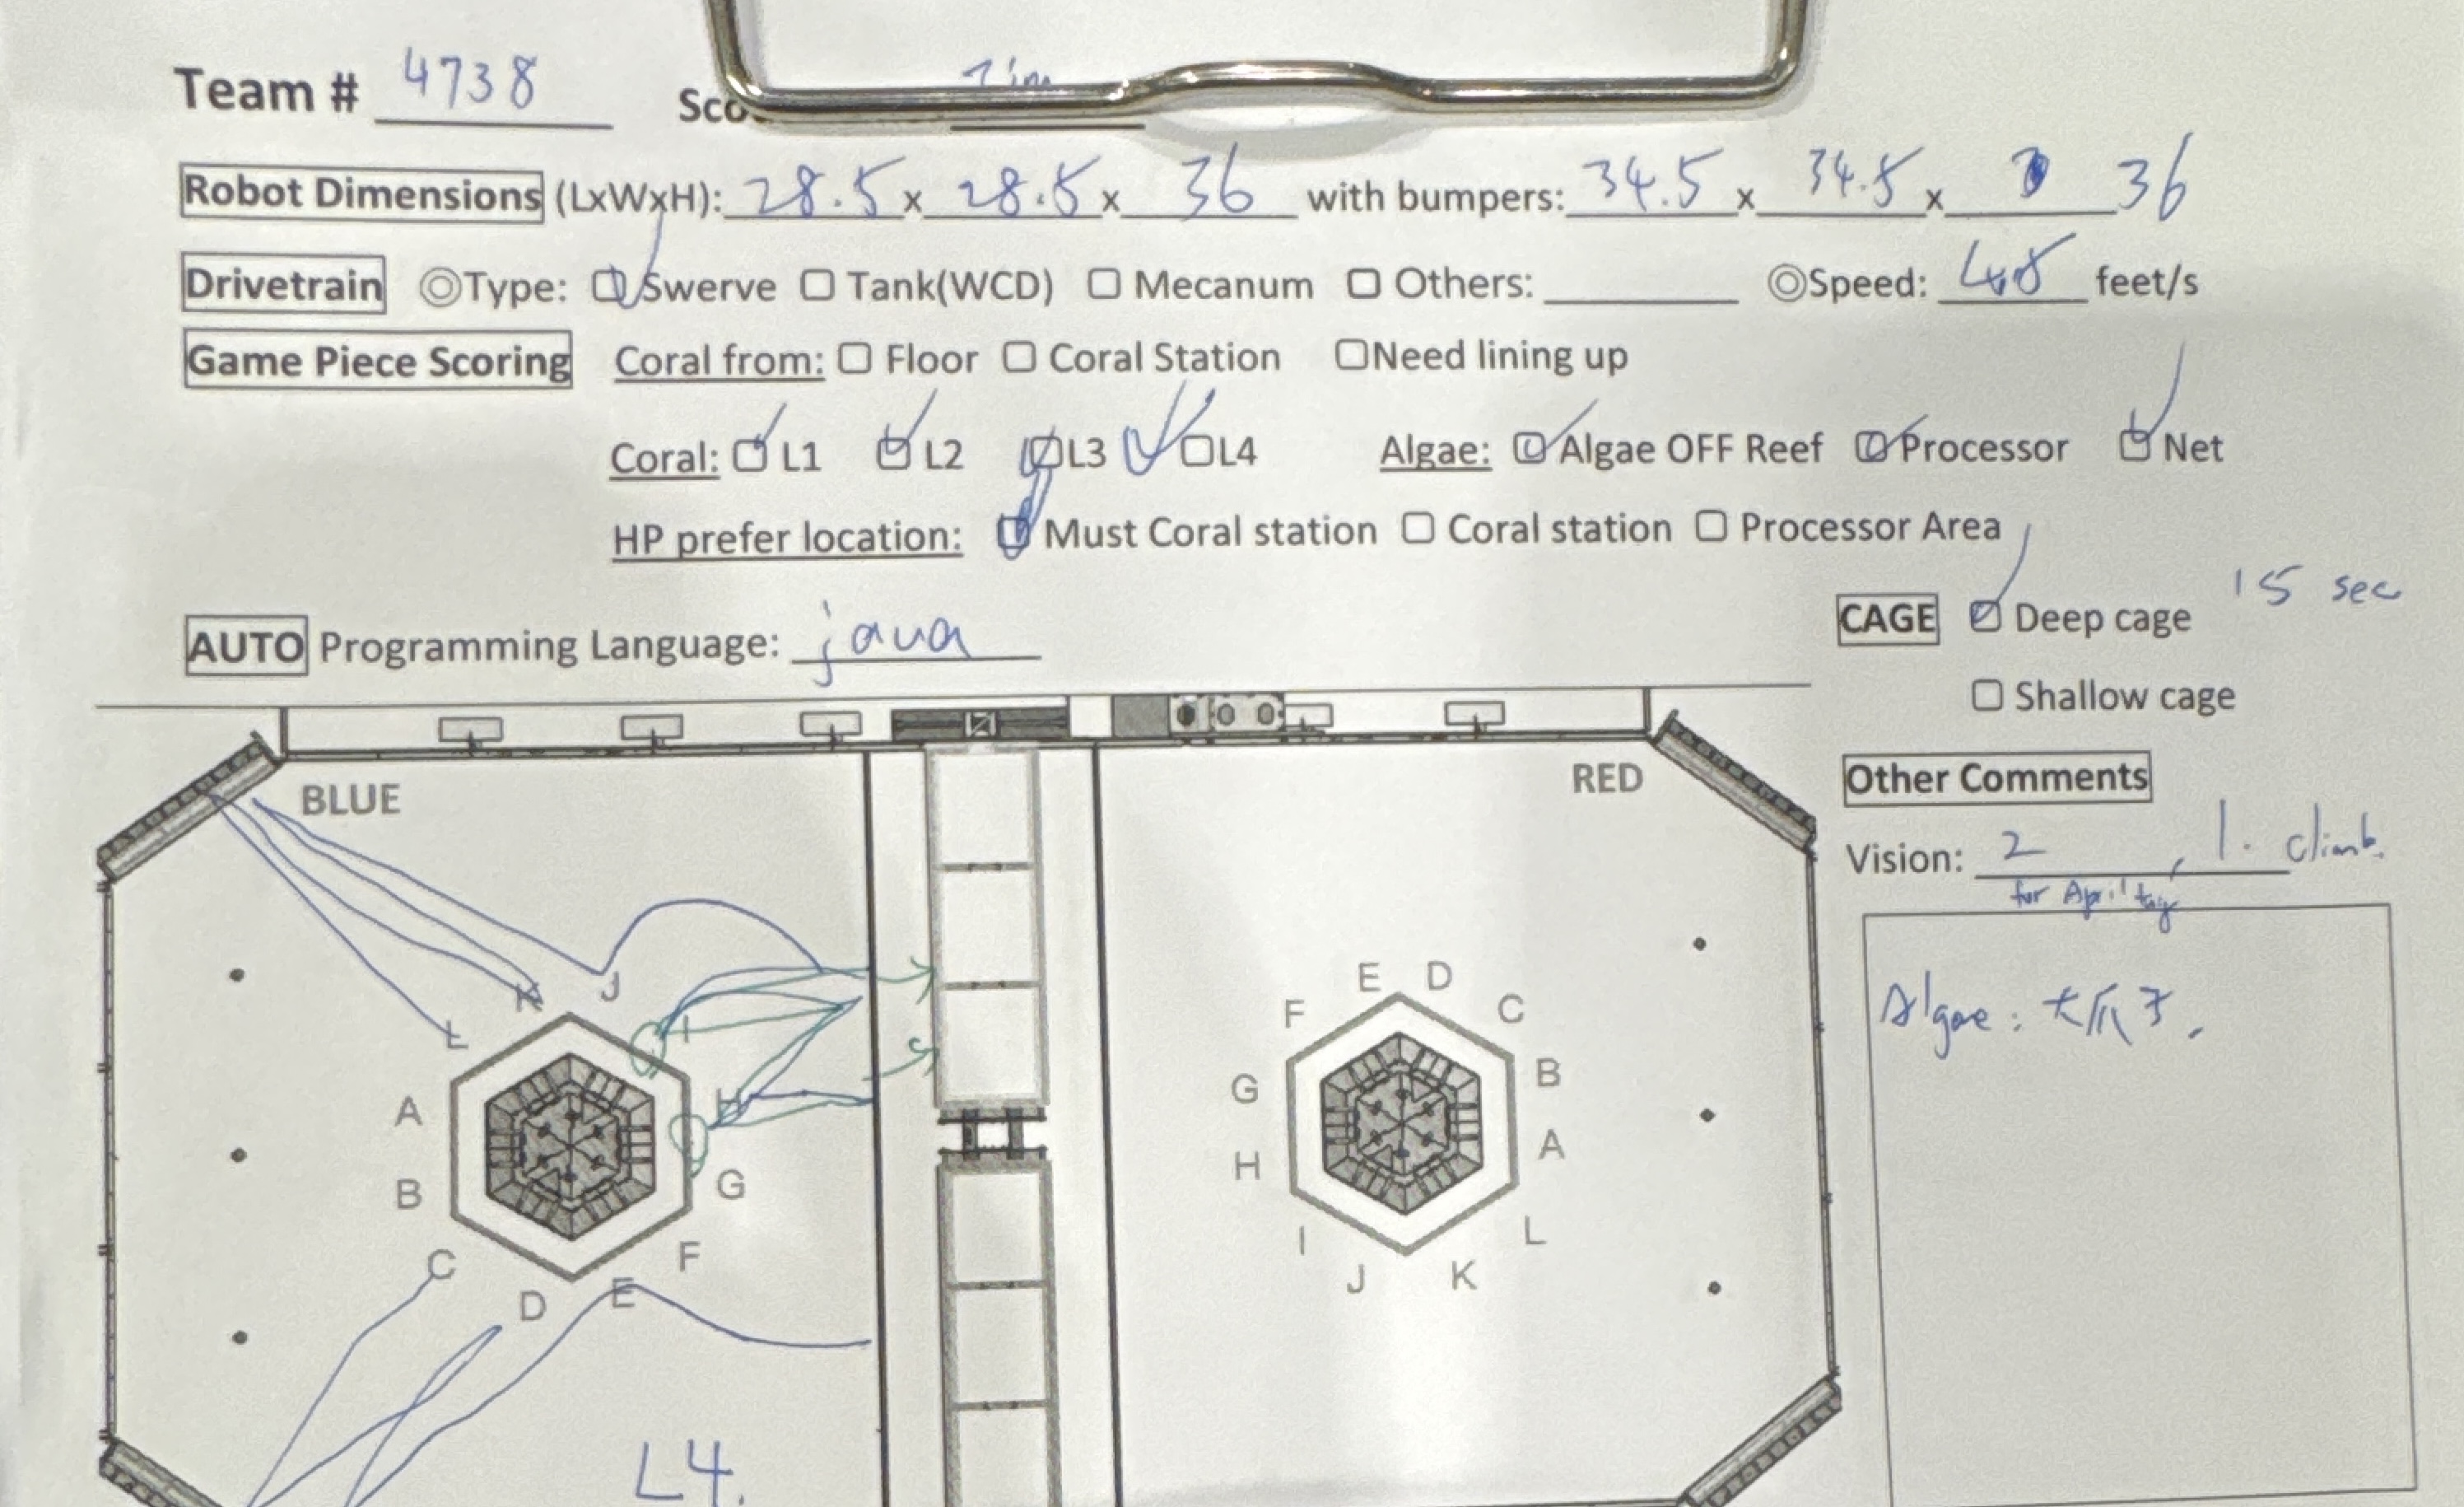 Team # 4738 Sco Tim
Robot Dimensions (LxWxH): 28.5 x 28.5 x 36 with bumpers: 34.5 x 34.5 x 36
Drivetrain ◎Type: ☑ Swerve ☐ Tank(WCD) ☐ Mecanum ☐ Others: ◎Speed: feet/s
Game Piece Scoring Coral from: ☐ Floor ☐ Coral Station ☐Need lining up
Coral: ☑ L1 ☑ L2 ☑L3 ☑L4 Algae: ☑ Algae OFF Reef ☑ Processor ☑ Net
HP prefer location: ☑ Must Coral station ☐ Coral station ☐ Processor Area
AUTO Programming Language: java
CAGE ☑ Deep cage 15 sec
☐ Shallow cage
BLUE
RED
Other Comments
Vision: 2 , 1. climb.
for April tag
Algae: 大爪子.
K J
L I
A H
B G
C F
D E
E D
F C
G B
H A
I L
J K
L4.